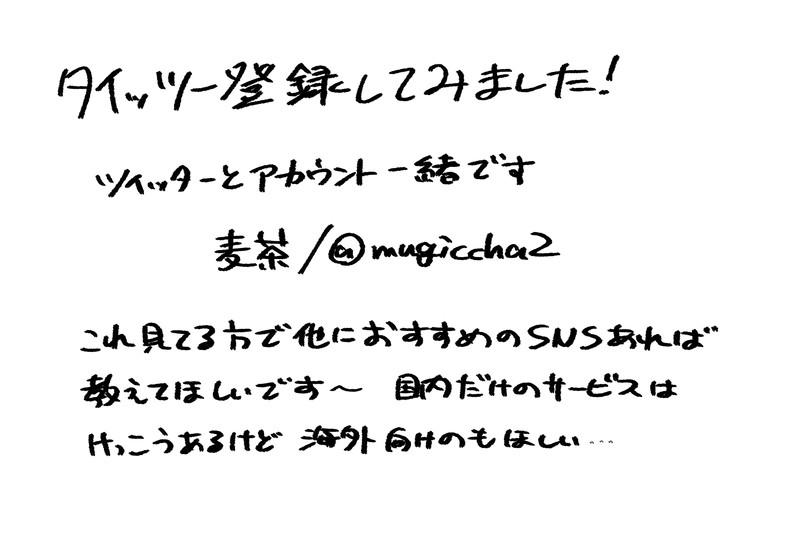 タイッツー登録してみました!
ツイッターとアカウント一緒です
麦茶/@mugiccha2
これ見てる方で他におすすめのSNSあれば
教えてほしいです〜 国内だけのサービスは
けっこうあるけど 海外向けのもほしい…